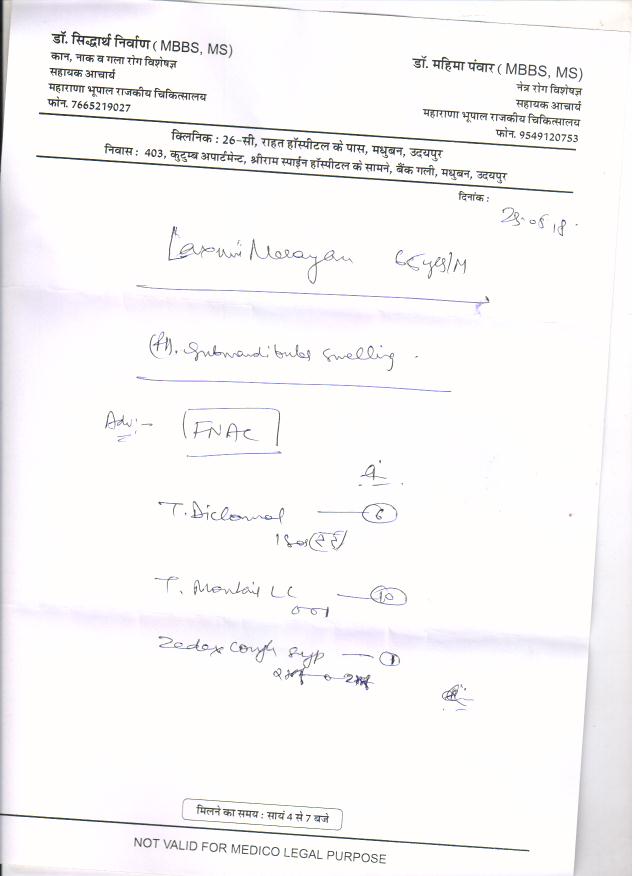 डॉ. सिद्धार्थ निर्वाण ( MBBS, MS)
कान, नाक व गला रोग विशेषज्ञ
सहायक आचार्य
महाराणा भूपाल राजकीय चिकित्सालय
फोन. 7665219027
डॉ. महिमा पंवार ( MBBS, MS)
नेत्र रोग विशेषज्ञ
सहायक आचार्य
महाराणा भूपाल राजकीय चिकित्सालय
फोन. 9549120753
क्लिनिक : 26-सी, राहत हॉस्पीटल के पास, मधुबन, उदयपुर
निवास : 403, कुटुम्ब अपार्टमेन्ट, श्रीराम स्पाईन हॉस्पीटल के सामने, बैंक गली, मधुबन, उदयपुर
दिनांक :
Laxmi Narayan 65 yrs/M
Submandibular swelling.
Adv:-
FNAC
T. Diclomol — 6
T. Montair LC — 10
001
Zedex cough syp — 1
मिलने का समय : सायं 4 से 7 बजे
NOT VALID FOR MEDICO LEGAL PURPOSE